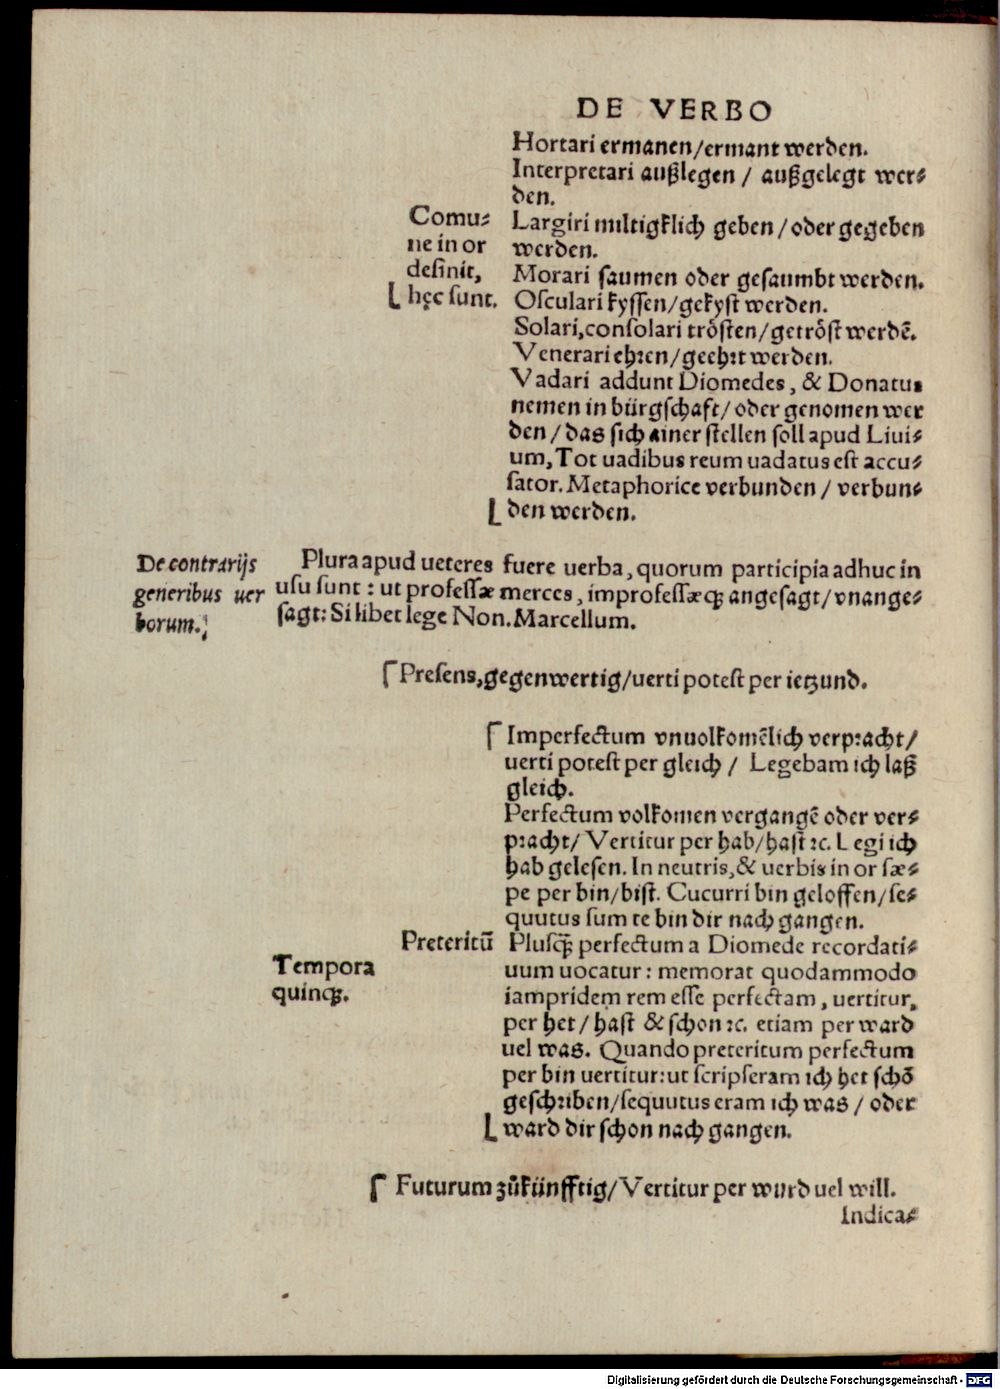 DE VERBO
Hortari ermanen/ermant werden.
Interpretari außlegen / außgelegt wer⸗
den.
Comu⸗
ne in or
desinit,
hęc sunt.
Largiri miltigklich geben / oder gegeben
werden.
Morari saumen oder gesaumbt werden.
Osculari kyssen/gekyst werden.
Solari,consolari trösten/getröst werdē.
Venerari ehren/geehrt werden.
Vadari addunt Diomedes, & Donatus
nemen in bürgschaft/oder genomen wer
den / das sich ainer stellen soll apud Liui⸗
um, Tot uadibus reum uadatus est accu⸗
sator. Metaphorice verbunden / verbun⸗
den werden.
De contrarijs
generibus uer
borum.
Plura apud ueteres fuere uerba, quorum participia adhuc in
usu sunt : ut professæ merces, improfessæq; angesagt/vnange⸗
sagt: Si libet lege Non. Marcellum.
Presens,gegenwertig/uerti potest per ietzund.
Imperfectum vnuolkomēlich verpracht/
uerti potest per gleich / Legebam ich laß
gleich.
Perfectum volkomen vergangē oder ver⸗
pracht/ Vertitur per hab/hast ꝛc. Legi ich
hab gelesen. In neutris,& uerbis in or sæ⸗
pe per bin/bist. Cucurri bin geloffen/se⸗
quutus sum te bin dir nach gangen.
Preteritū
Tempora
quinq;.
Plusq; perfectum a Diomede recordati⸗
uum uocatur : memorat quodammodo
iampridem rem esse perfectam, uertitur,
per het / hast & schon ꝛc. etiam per ward
uel was. Quando preteritum perfectum
per bin uertitur: ut scripseram ich het schō
geschriben/sequutus eram ich was / oder
ward dir schon nach gangen.
Futurum zůkünfftig/Vertitur per wurd uel will.
Indica⸗
Digitalisierung gefördert durch die Deutsche Forschungsgemeinschaft - DFG